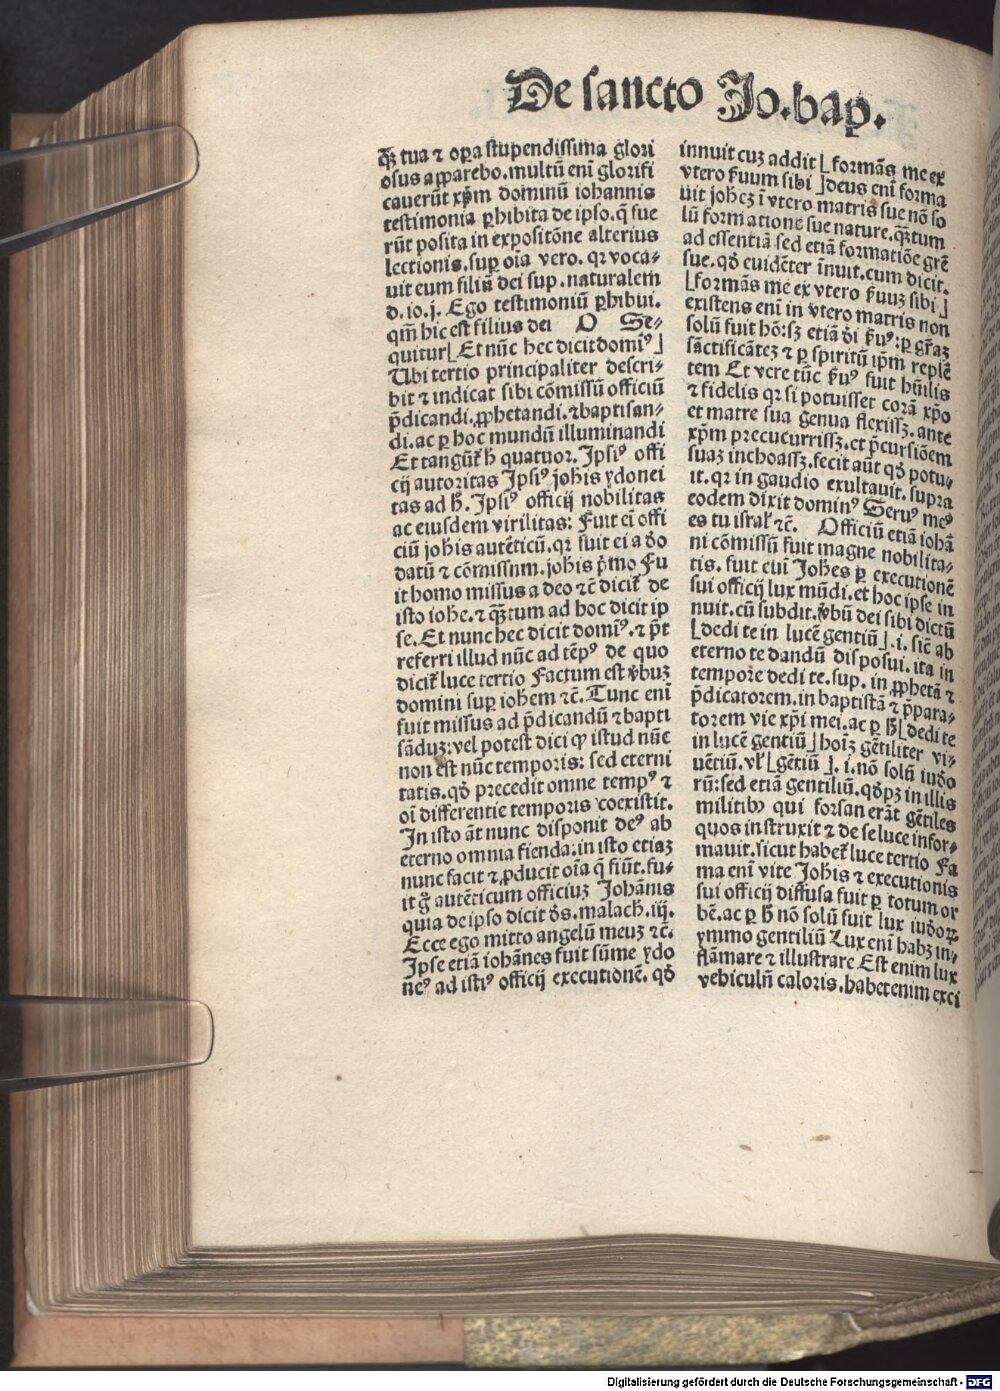 De sancto Jo.bap̲.
ꝙ̃ tua ⁊ oꝑa stupendissima glori
osus apparebo.multũ eni glorifi
cauerũt xp̃m dominũ iohannis
testimonia ꝑhibita de ipso.q̃ sue
rũt posita in expositõne alterius
lectionis.suꝑ oĩa vero. qꝛ voca⸗
uit eum filiũ dei sup.naturalem
d.io.j. Ego testimoniũ ꝑhibui.
qm̃ hic est filius dei O Se⸗
quitur[Et nũc hec dicit domiꝰ]
Ubi tertio principaliter descri⸗
bit ⁊ indicat sibi cõmissũ officiũ
p̃dicandi.ꝓphetandi.⁊baptisan⸗
di.ac ꝑ hoc mundũ illuminandi
Et tangũt̃ h̃ quatuor. Ipsiꝰ offi
cij autoritas Ipsiꝰ johis ydonei
tas ad h̃. Ipsiꝰ officij nobilitas
ac eiusdem virilitas: Fuit ei offi
ciũ johis autẽticũ.qꝛ fuit ei a do
datũ ⁊ cõmissnm.johis p̃mo Fu
it homo missus a deo ⁊c̃ dicit̃ de
isto iohe.⁊ qꝫtum ad hoc dicit ip
se.Et nunc hec dicit domiꝰ.⁊ p̃t
referri illud nũc ad tẽpꝰ de quo
dicit̃ luce tertio Factum est v̓buꝫ
domini suꝑ iohem ⁊c̃.Tunc eni
fuit missus ad p̃dicandũ ⁊ bapti
sãduꝫ:vel potest dici ꝙ istud nũc
non est nũc temporis: sed eterni
tatis.qð precedit omne tempꝰ ⁊
oĩ differentie temporis coexistit.
In isto ãt nunc disponit deꝰ ab
eterno omnia fienda:in isto etiaꝫ
nunc facit ⁊ ꝓducit oĩa q̃ fiũt.fu⸗
it g̃ autẽticum officiuꝫ Johãnis
quia de ipso dicit ds̃.malach.iij.
Ecce ego mitto angelũ meuꝫ ⁊c̃.
Ipse etiã iohãnes fuit sũme ydo
neꝰ ad istiꝰ officij executionẽ. qð
innuit cuꝫ addit [formãs me ex
vtero ẜuum sibi ]deus eni forma
uit joheꝫ ĩ vtero matris sue nõ so
lũ formatione sue nature.qꝫtum
ad essentiã sed etiã formatiõe grẽ
sue.qð euidẽter ĩnuit.cum dicit.
[formãs me ex vtero ẜuuꝫ sibi]
existens eni in vtero matris non
solũ fuit hõ:sꝫ etiã di ẜuꝰ:ꝑ gr̃aꝫ
sãctificãteꝫ ⁊ ꝑ spiritũ ip̃m replẽ
tem Et vere tũc ẜuꝰ fuit hũilis
⁊ fidelis qꝛ si potuisset corã xp̃o
et matre sua genua flexissꝫ.ante
xp̃m precucurrissꝫ.et p̃cursiõem
suaꝫ inchoassꝫ.fecit aũt qð potu⸗
it.qꝛ in gaudio exultauit.supra
eodem dixit dominꝰ Seruꝰ meꝰ
es tu israł ⁊c̃. Officiũ etiã iohã
ni cõmissũ fuit magne nobilita⸗
tis. fuit eni Johes ꝑ executionẽ
sui officij lux mũdi.et hoc ipse in
nuit.cũ subdit.v̓bũ dei sibi dictũ
[dedi te in lucẽ gentiũ].i.sic̃ ab
eterno te dandũ disposui.ita in
tempore dedi te.sup. in ꝓphetã ⁊
p̃dicatorem.in baptistã ⁊ p̃para⸗
torem vie xp̃i mei.ac ꝑ h̃[dedi te
in lucẽ gentiũ]hoĩꝫ gẽtiliter vi⸗
uẽtiũ.vł[gẽtiũ].i.nõ solũ iudo
rũ:sed etiã gentiliũ.qðpꝫ in illis
militibꝰ qui forsan erãt gẽtiles
quos instruxit ⁊ de se luce infor⸗
mauit.sicut habet̃ luce tertio Fa
ma eni vite Johis ⁊ executionis
sui officij diffusa fuit ꝑ totum or
bẽ.ac ꝑ h̃ nõ solũ fuit lux iudoꝝ
ymmo gentiliũ Lux eni habꝫ in⸗
flãmare ⁊ illustrare Est enim lux
vehiculũ caloris.habet enim exci
Digitalisierung gefördert durch die Deutsche Forschungsgemeinschaft - DFG